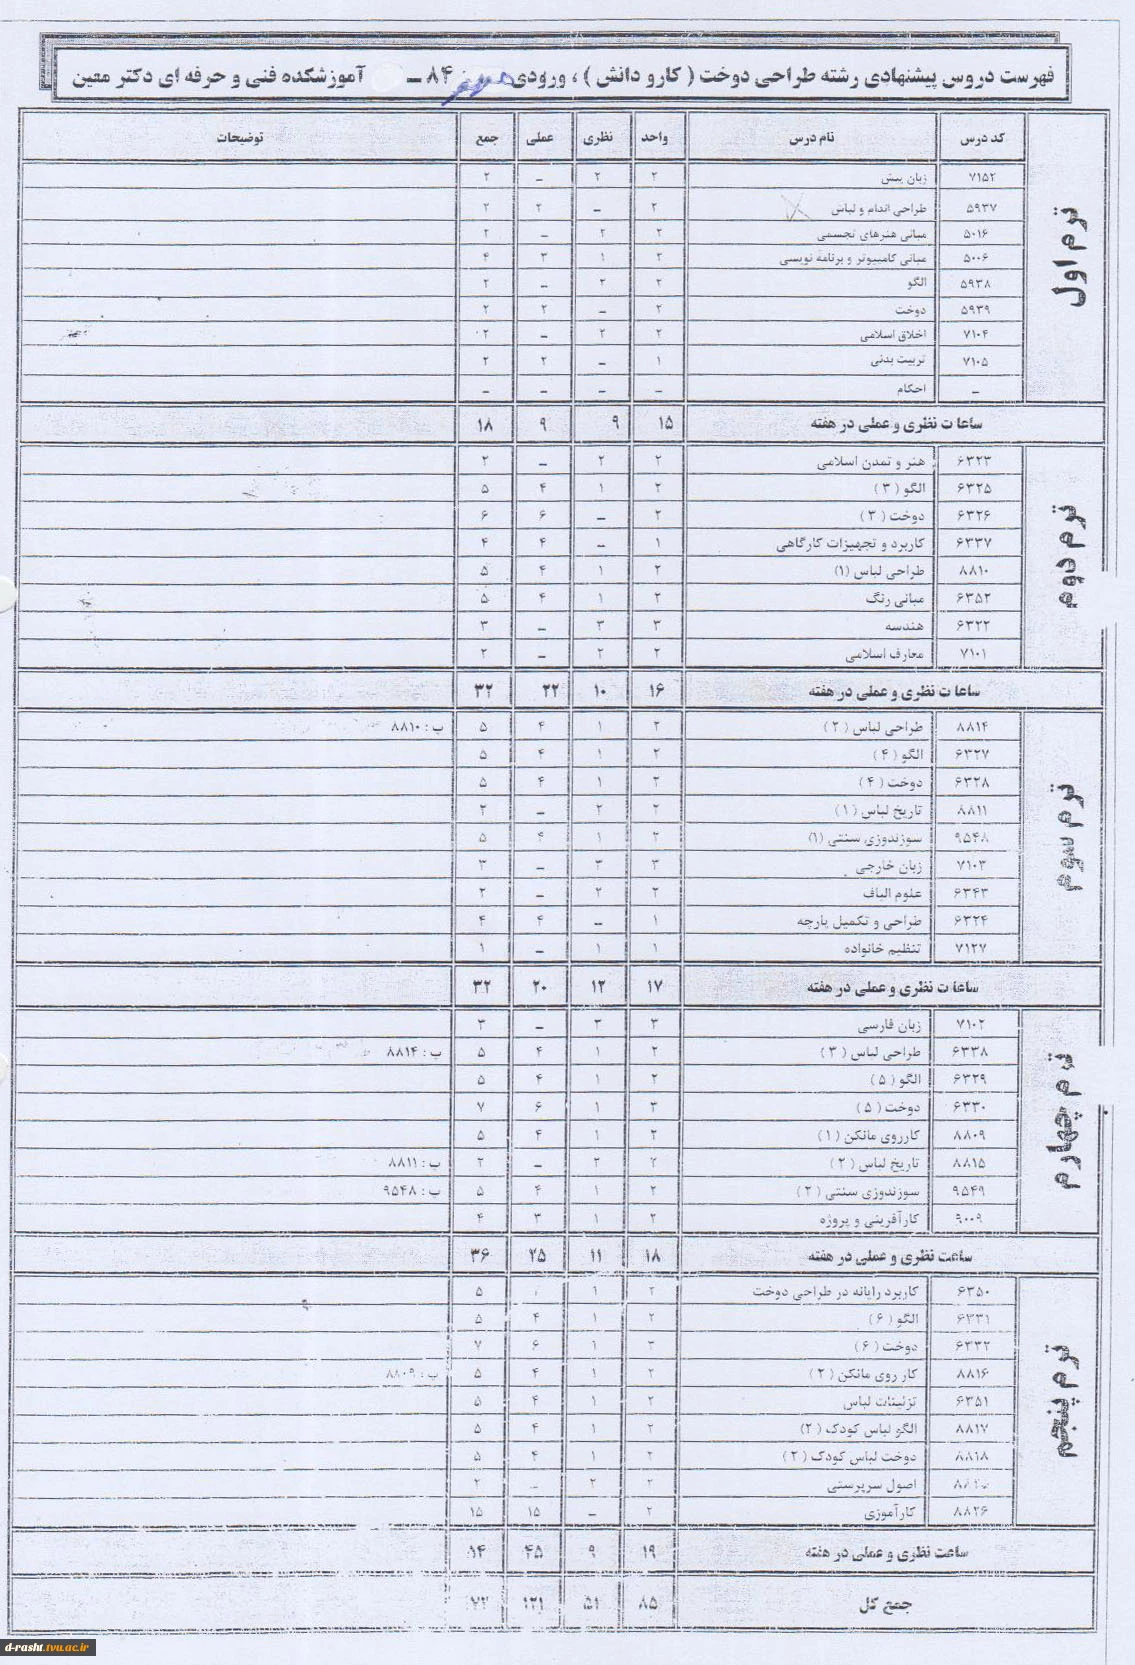 فهرست دروس پیشنهادی رشته طراحی دوخت ( کار و دانش ) ، ورودی مهر ۸۴ ـ آموزشکده فنی و حرفه ای دکتر معین
کد درس نام درس واحد نظری عملی جمع توضیحات
ترم اول
۷۱۵۲ زبان پیش ۲ ۲ ـ ۲
۵۹۳۷ طراحی اندام و لباس ۲ ـ ۲ ۲
۵۰۱۶ مبانی هنرهای تجسمی ۲ ۲ ـ ۲
۵۰۰۶ مبانی کامپیوتر و برنامه نویسی ۲ ۱ ۳ ۴
۵۹۳۸ الگو ۲ ۲ ـ ۲
۵۹۳۹ دوخت ۲ ـ ۲ ۲
۷۱۰۴ اخلاق اسلامی ۲ ۲ ـ ۲
۷۱۰۵ تربیت بدنی ۱ ـ ۲ ۲
ـ احکام ـ ـ ـ ـ
ساعات نظری و عملی در هفته ۱۵ ۹ ۹ ۱۸
ترم دوم
۶۳۲۳ هنر و تمدن اسلامی ۲ ۲ ـ ۲
۶۳۲۵ الگو ( ۳ ) ۲ ۱ ۴ ۵
۶۳۲۶ دوخت ( ۳ ) ۲ ـ ۶ ۶
۶۳۳۷ کاربرد و تجهیزات کارگاهی ۱ ـ ۴ ۴
۸۸۱۰ طراحی لباس (۱) ۲ ۱ ۴ ۵
۶۳۵۲ مبانی رنگ ۲ ۱ ۴ ۵
۶۳۲۲ هندسه ۳ ۳ ـ ۳
۷۱۰۱ معارف اسلامی ۲ ۲ ـ ۲
ساعات نظری و عملی در هفته ۱۶ ۱۰ ۲۲ ۳۲
ترم سوم
۸۸۱۴ طراحی لباس ( ۲ ) ۲ ۱ ۴ ۵ پ : ۸۸۱۰
۶۳۲۷ الگو ( ۴ ) ۲ ۱ ۴ ۵
۶۳۲۸ دوخت ( ۴ ) ۲ ۱ ۴ ۵
۸۸۱۱ تاریخ لباس ( ۱ ) ۲ ۲ ـ ۲
۹۵۴۸ سوزندوزی سنتی (۱) ۲ ۱ ۴ ۵
۷۱۰۳ زبان خارجی ۳ ۳ ـ ۳
۶۳۴۳ علوم الیاف ۲ ۲ ـ ۲
۶۳۲۴ طراحی و تکمیل پارچه ۱ ـ ۴ ۴
۷۱۲۷ تنظیم خانواده ۱ ۱ ـ ۱
ساعات نظری و عملی در هفته ۱۷ ۱۲ ۲۰ ۳۲
ترم چهارم
۷۱۰۲ زبان فارسی ۳ ۳ ـ ۳
۶۳۳۸ طراحی لباس ( ۳ ) ۲ ۱ ۴ ۵ پ : ۸۸۱۴
۶۳۲۹ الگو ( ۵ ) ۲ ۱ ۴ ۵
۶۳۳۰ دوخت ( ۵ ) ۳ ۱ ۶ ۷
۸۸۰۹ کار روی مانکن ( ۱ ) ۲ ۱ ۴ ۵
۸۸۱۵ تاریخ لباس ( ۲ ) ۲ ۲ ـ ۲ پ : ۸۸۱۱
۹۵۴۹ سوزندوزی سنتی ( ۲ ) ۲ ۱ ۴ ۵ پ : ۹۵۴۸
۹۰۰۹ کارآفرینی و پروژه ۲ ۱ ۳ ۴
ساعت نظری و عملی در هفته ۱۸ ۱۱ ۲۵ ۳۶
ترم پنجم
۶۳۵۰ کاربرد رایانه در طراحی دوخت ۲ ۱ ۵
۶۳۳۱ الگو ( ۶ ) ۲ ۱ ۴ ۵
۶۳۳۲ دوخت ( ۶ ) ۳ ۱ ۶ ۷
۸۸۱۶ کار روی مانکن ( ۲ ) ۲ ۱ ۴ ۵ پ : ۸۸۰۹
۶۳۵۱ تزئینات لباس ۲ ۱ ۴ ۵
۸۸۱۷ الگو لباس کودک ( ۲) ۲ ۱ ۴ ۵
۸۸۱۸ دوخت لباس کودک ( ۲ ) ۲ ۱ ۴ ۵
اصول سرپرستی ۲ ۲ ـ ۲
۸۸۲۶ کارآموزی ۲ ـ ۱۵ ۱۵
ساعت نظری و عملی در هفته ۱۹ ۹ ۴۵ ۱۴
جمع کل ۸۵ ۵۱ ۱۲۱ ۷۲
d-rasht.tvu.ac.ir